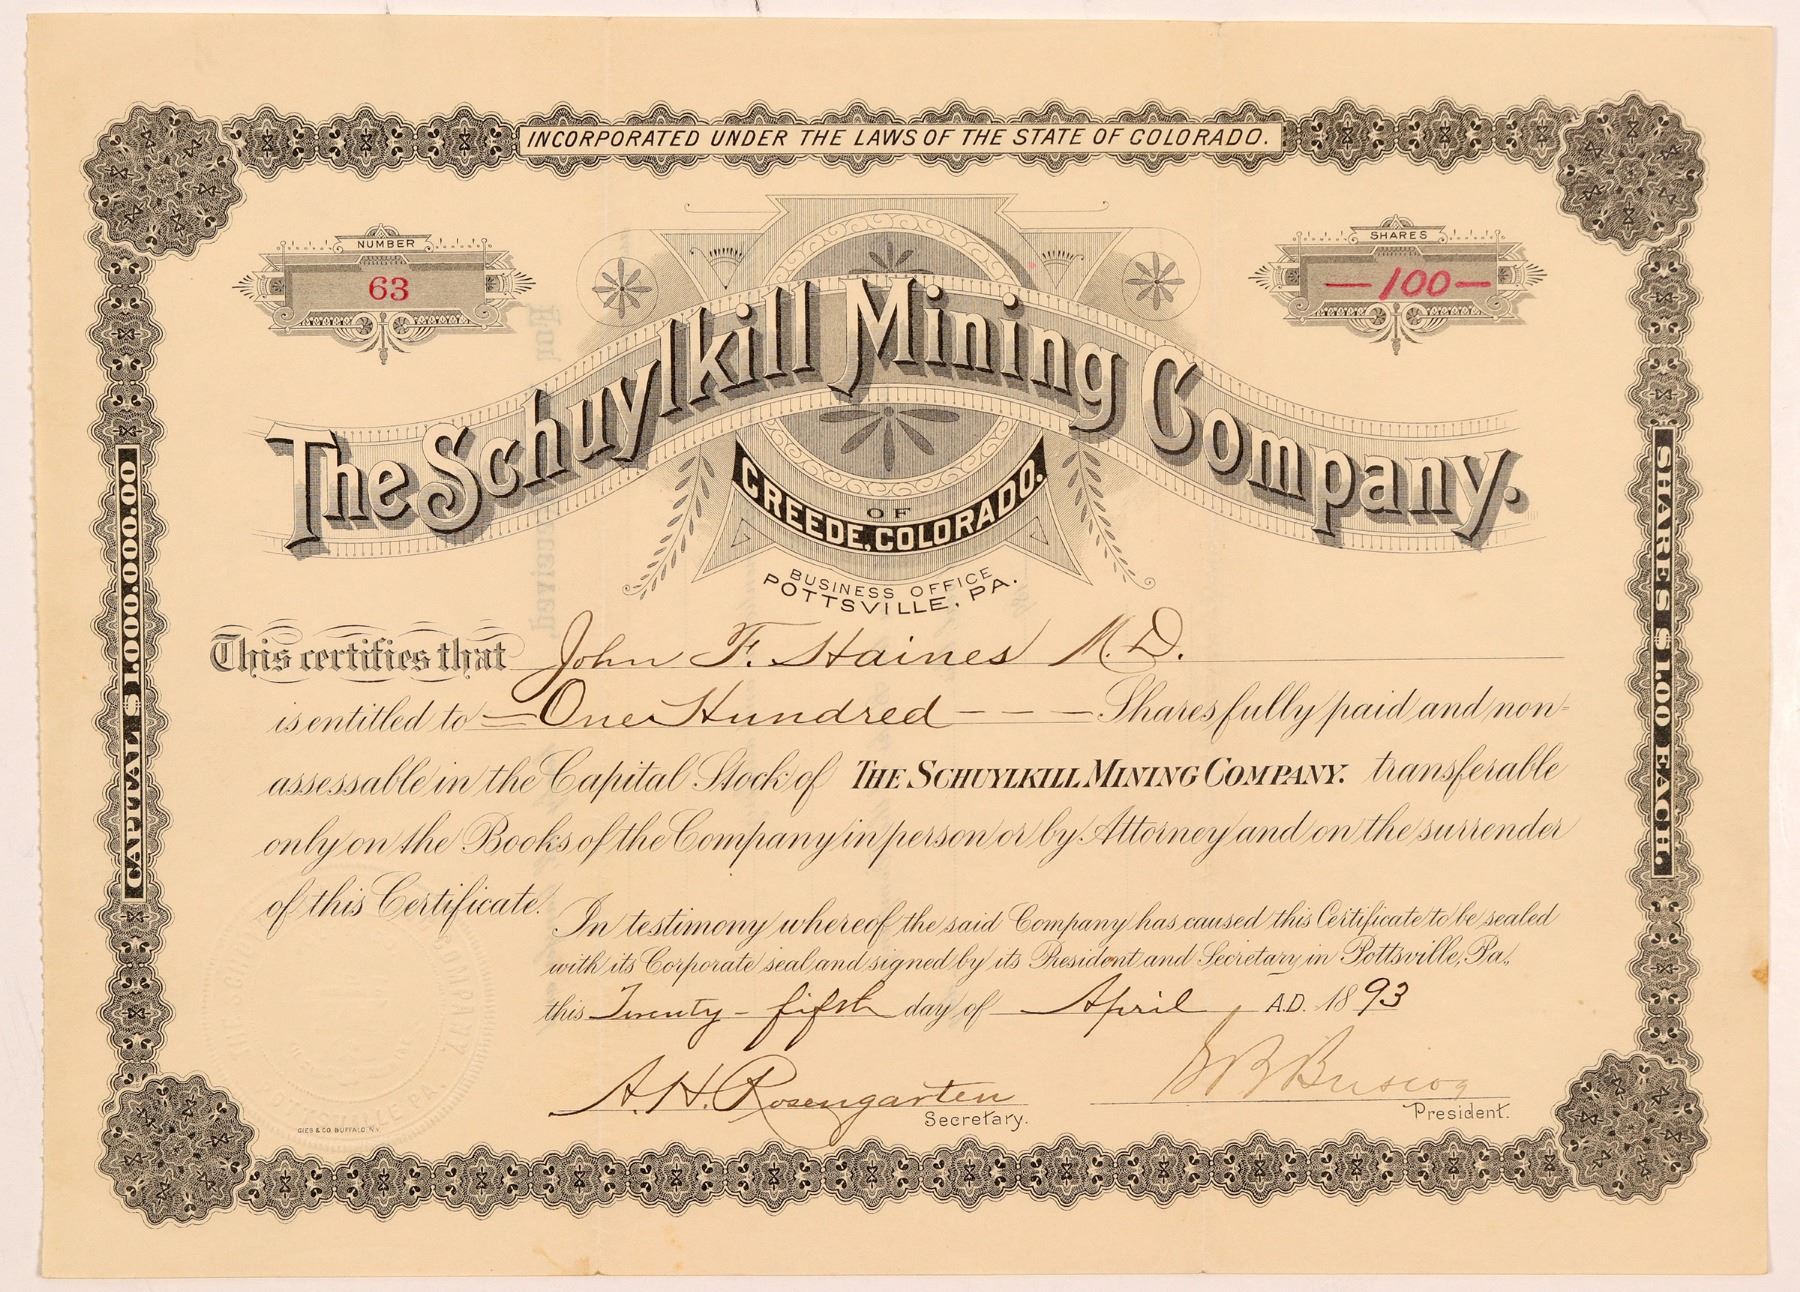 INCORPORATED UNDER THE LAWS OF THE STATE OF COLORADO.
NUMBER
63
SHARES
—100—
The Schuylkill Mining Company.
OF
CREEDE, COLORADO.
BUSINESS OFFICE
POTTSVILLE, PA.
CAPITAL $1,000,000.00
SHARES $1.00 EACH.
This certifies that John F. Haines M.D.
is entitled to — One Hundred - - — Shares fully paid and non-
assessable in the Capital Stock of THE SCHUYLKILL MINING COMPANY. transferable
only on the Books of the Company in person or by Attorney and on the surrender
of this Certificate.
In testimony whereof the said Company has caused this Certificate to be sealed
with its Corporate seal and signed by its President and Secretary in Pottsville, Pa.,
this Twenty-fifth day of April A.D. 1893
A. H. Rosengarten
Secretary.
President.
COMPANY.
POTTSVILLE PA.
GIES & CO. BUFFALO, N.Y.